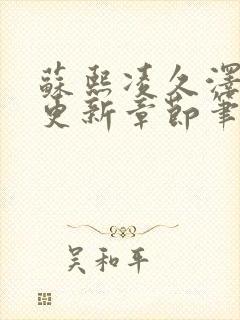 蘇熙凌久澤
更新章節筆
吴和平